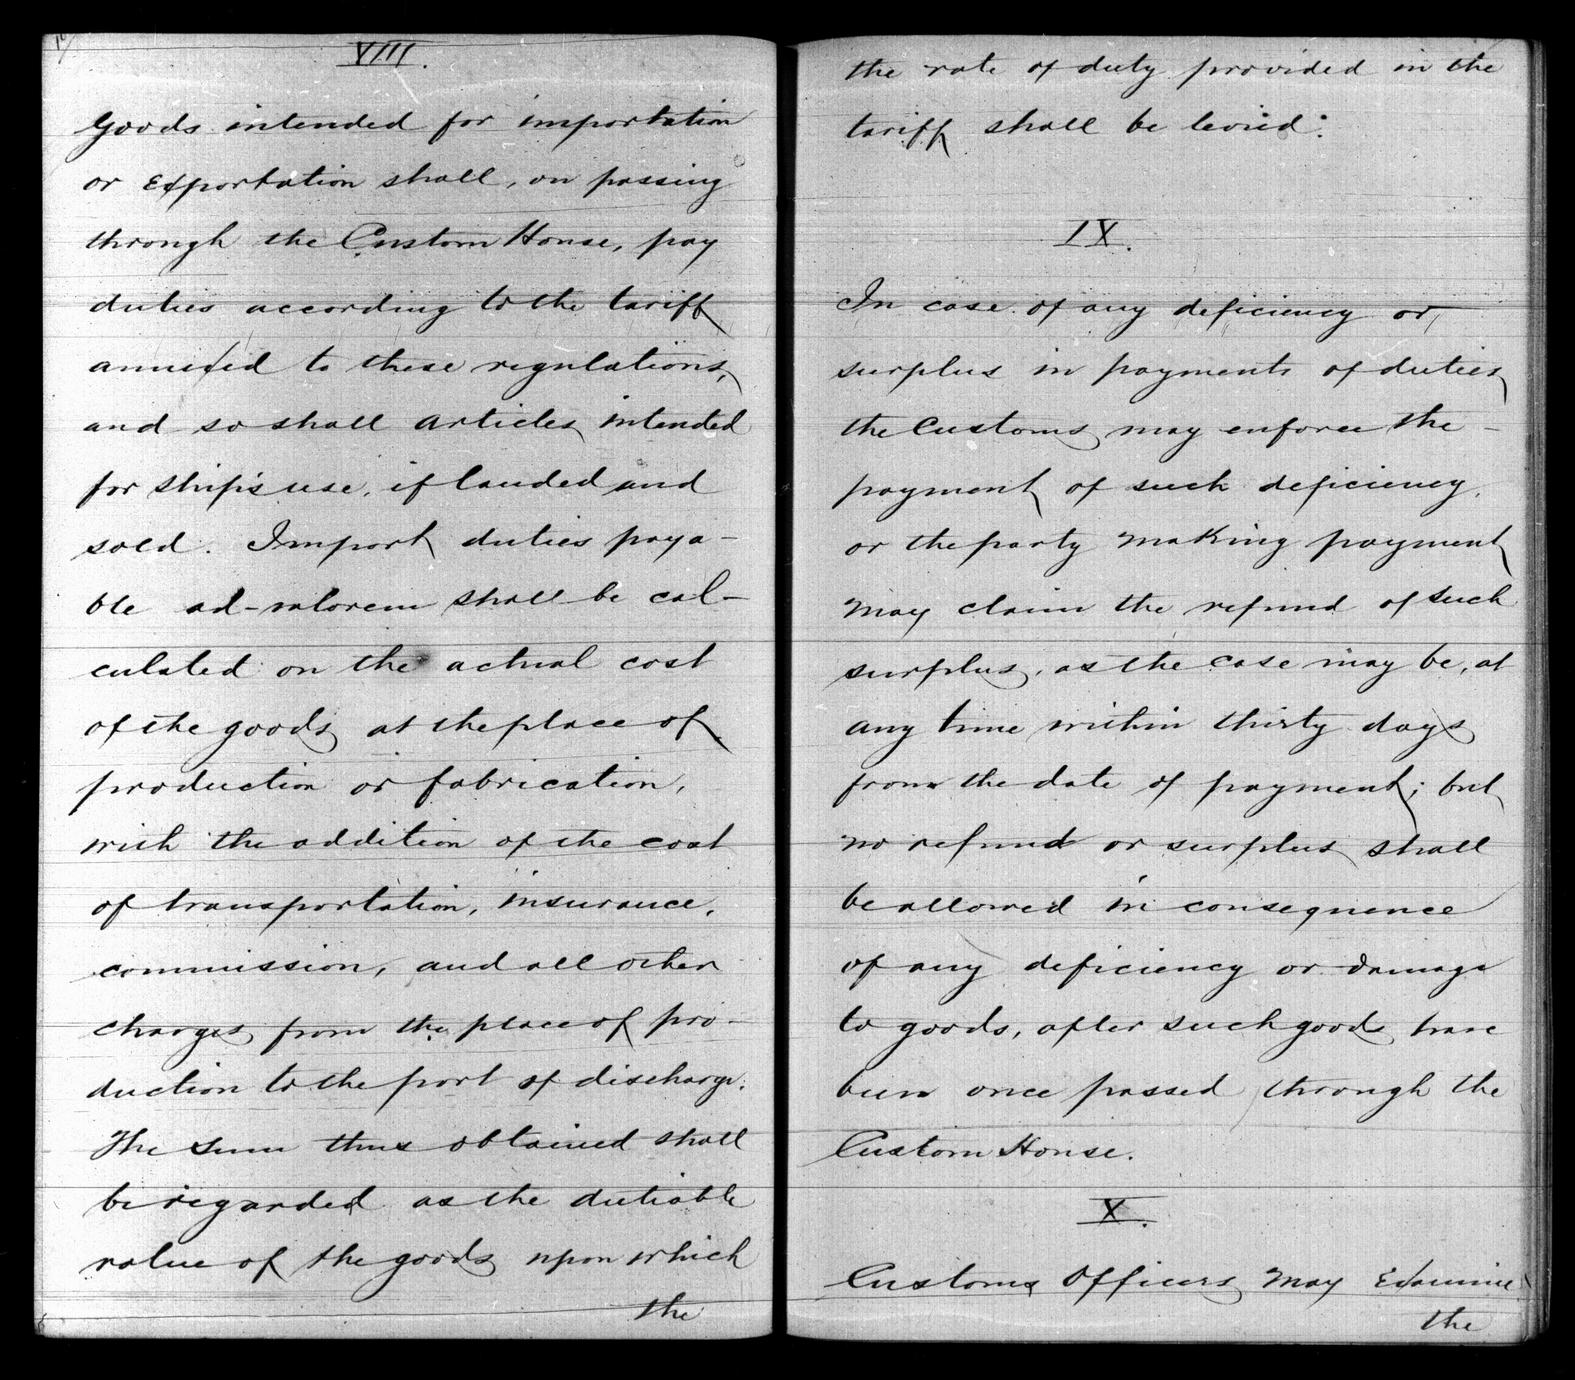 VIII.
Goods intended for importation
or Exportation shall, on passing
through the Custom House, pay
duties according to the tariff
annexed to these regulations,
and so shall articles intended
for ship's use, if landed and
sold. Import duties paya-
ble ad-valorem shall be cal-
culated on the actual cost
of the goods at the place of
production or fabrication,
with the addition of the cost
of transportation, insurance,
commission, and all other
charges from the place of pro-
duction to the port of discharge.
The sum thus obtained shall
be regarded as the dutiable
value of the goods upon which
the
the rate of duty provided in the
tariff shall be levied.
IX.
In case of any deficiency or
surplus in payments of duties
the Customs may enforce the -
payment of such deficiency,
or the party making payment
may claim the refund of such
surplus, as the case may be, at
any time within thirty days
from the date of payment; but
no refund or surplus shall
be allowed in consequence
of any deficiency or damage
to goods, after such goods have
been once passed through the
Custom House.
X.
Customs Officers may Examine
the